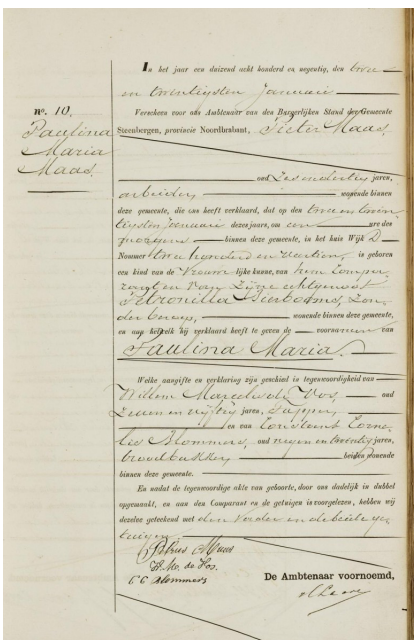 In het jaar een duizend acht honderd en negentig, den twee
en twintigsten Januari
Verscheen voor ons Ambtenaar van den Burgerlijken Stand der Gemeente
Steenbergen, provincie Noordbrabant, Pieter Maas,
No. 10.
Paulina
Maria
Maas.
oud zesendertig jaren,
arbeider wonende binnen
deze gemeente, die ons heeft verklaard, dat op den twee en twin
tigsten Januari dezes jaars, om een ure des
morgens binnen deze gemeente, in het huis Wijk D
Nommer twee honderd en veertien, is geboren
een kind van de vrouwelijke kunne, van hem Compa
rant en van zijne echtgenoot
Petronella zon
der beroep, wonende binnen deze gemeente,
en aan hetwelk hij verklaard heeft te geven de voornamen van
Paulina Maria.
Welke aangifte en verklaring zijn geschied in tegenwoordigheid van
Willem Marcelis de Vos, oud
zeven en vijftig jaren, Tapper,
en van Constant Corne
lis Blommers, oud negen en twintig jaren,
broodbakker, beiden wonende
binnen deze gemeente.
En nadat de tegenwoordige akte van geboorte, door ons dadelijk in dubbel
opgemaakt, en aan den Comparant en de getuigen is voorgelezen, hebben wij
dezelve geteekend met den Vader en de beide ge
tuigen.
Petrus Maas
W. M. de Vos.
C C Blommers
De Ambtenaar voornoemd,